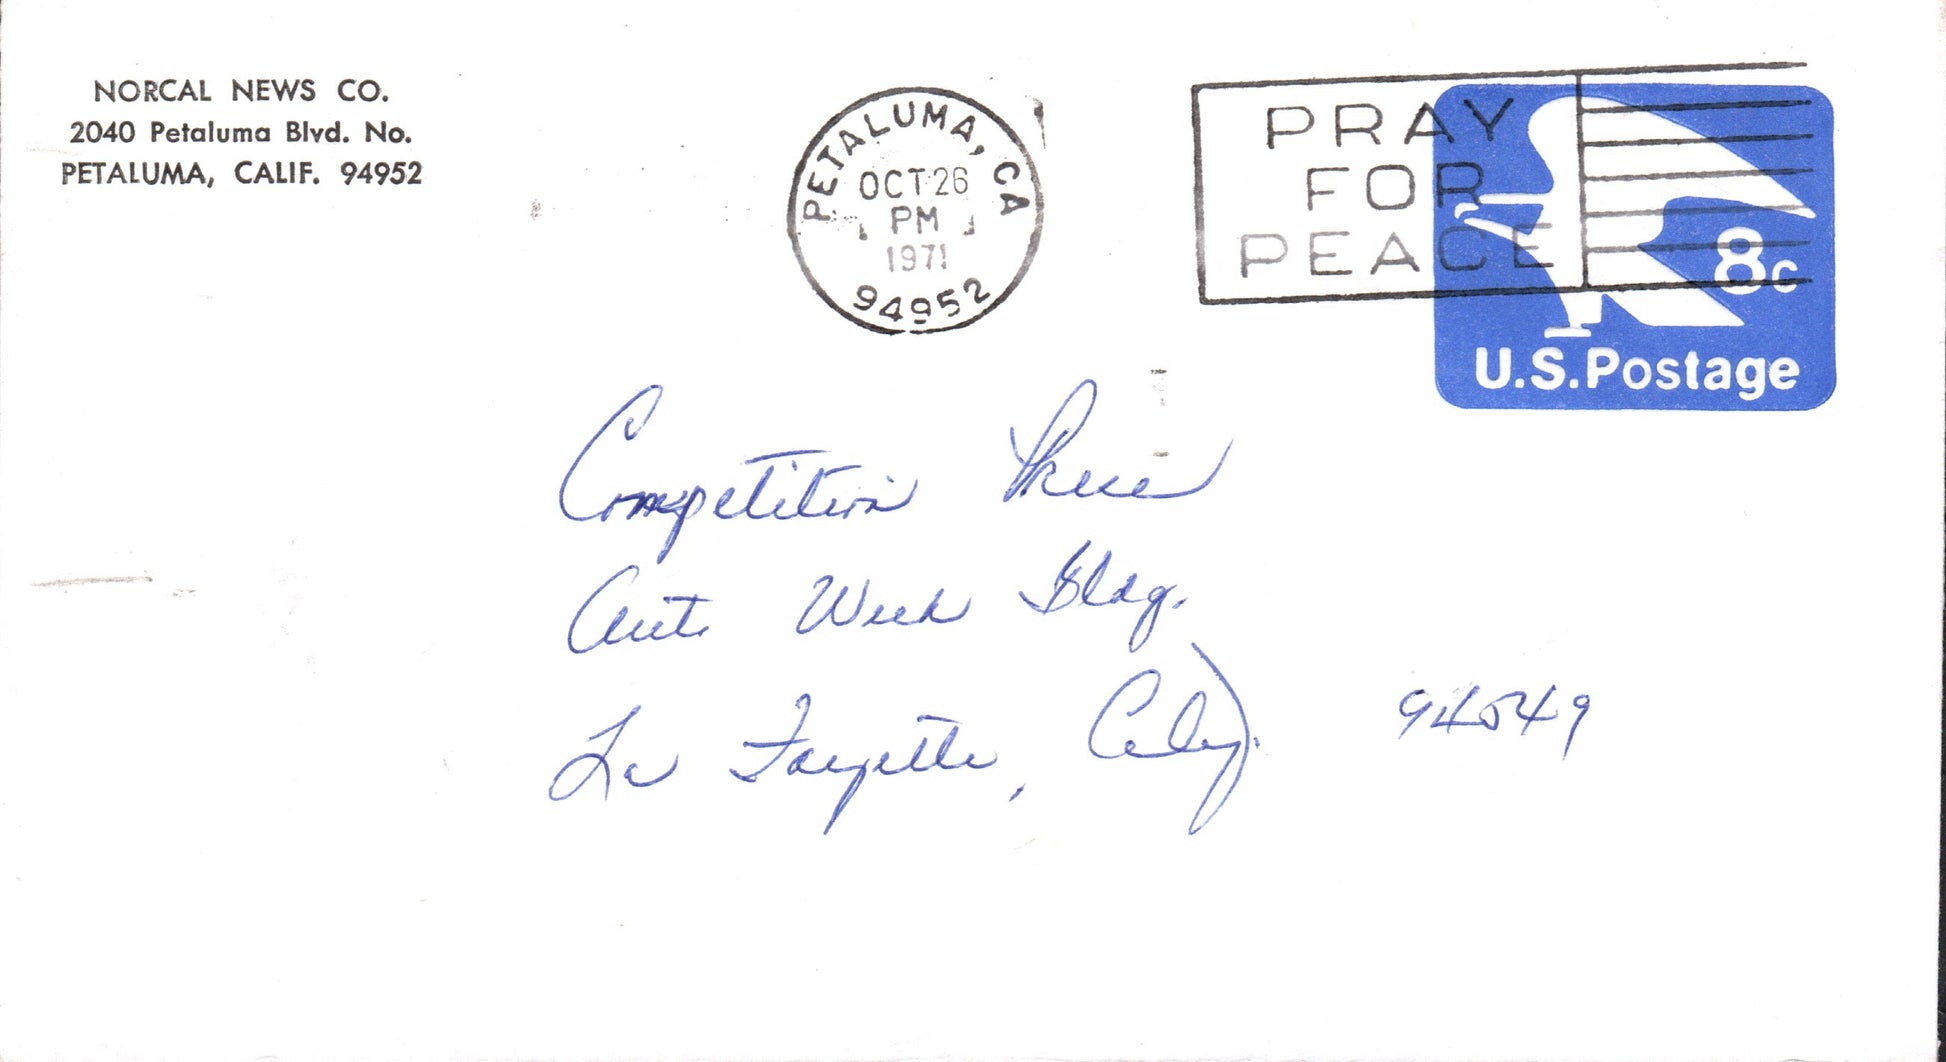 NORCAL NEWS CO.
2040 Petaluma Blvd. No.
PETALUMA, CALIF. 94952
PETALUMA, CA
OCT 26
PM
1971
94952
PRAY
FOR
PEACE
8c
U.S. Postage
Competition Press
Auto Week Bldg.
La Fayette, Calif. 94549